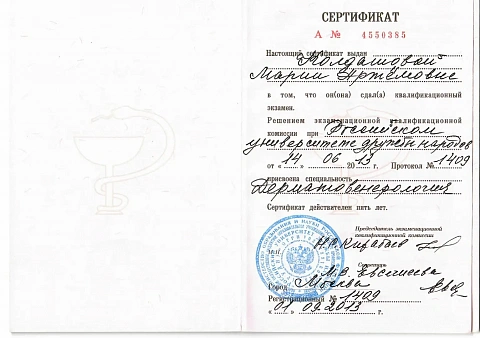 СЕРТИФИКАТ
А № 4550385
Настоящий сертификат выдан
Молдашовой
Марии Артёмовне
в том, что он(она) сдал(а) квалификационный
экзамен.
Решением экзаменационной квалификационной
комиссии при Российском
университете дружбы народов
от « 14 » 06 2013 г. Протокол № 1409
присвоена специальность
Дерматовенерология
Сертификат действителен пять лет.
Председатель экзаменационной
квалификационной комиссии
М.П.
Секретарь
М.З. Евсеичева
Город Москва
Регистрационный № 1409
« 01 » 09 2013